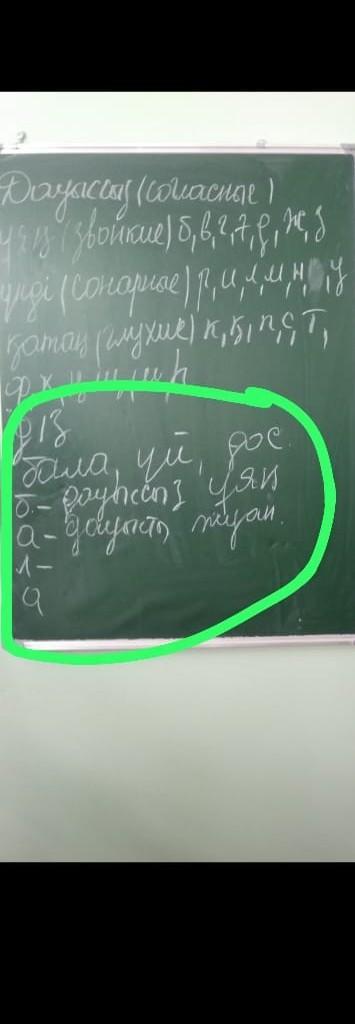 Дауыссыз (согласные)
ұяң (звонкие) б, в, г, ғ, д, ж, з
үнді (сонорные) р, и, л, м, н, у
қатаң (глухие) к, қ, п, с, т,
ф, х, ц, ч, ш, щ, һ
Д/З
бала, үй, дос.
б - дауыссыз ұяң
а - дауысты жуан.
л -
а